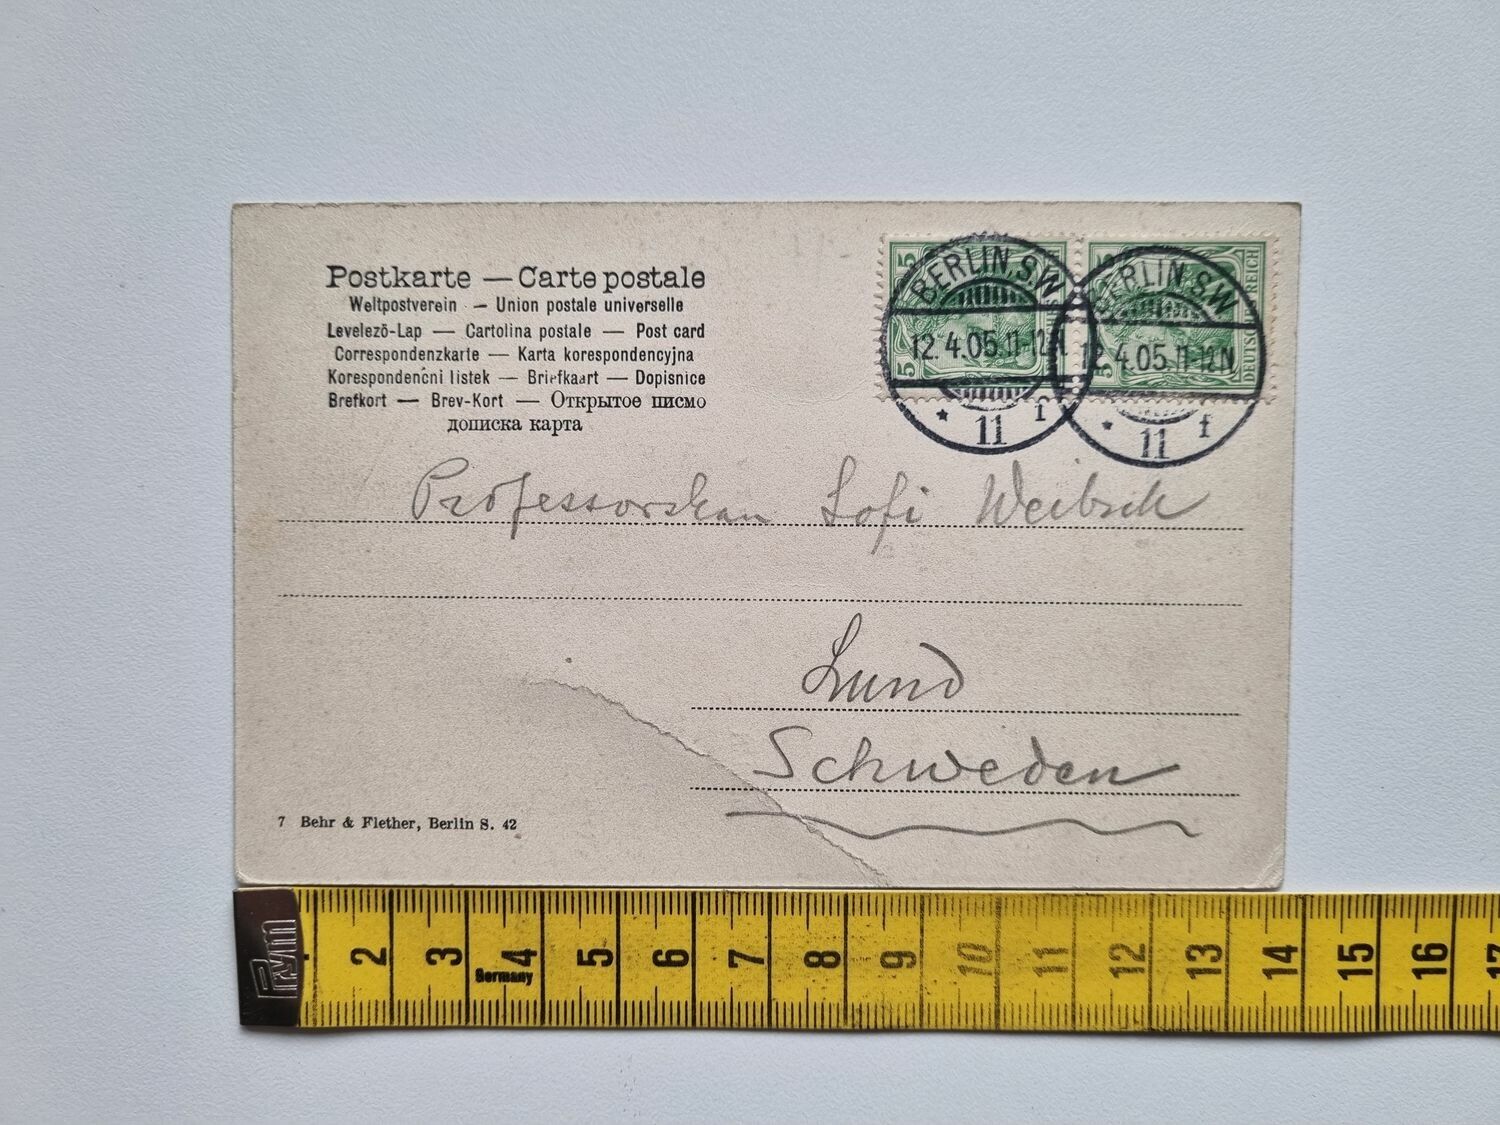 Postkarte — Carte postale
Weltpostverein — Union postale universelle
Levelezõ-Lap — Cartolina postale — Post card
Correspondenzkarte — Karta korespondencyjna
Korespondenčni listek — Briefkaart — Dopisnice
Brefkort — Brev-Kort — Открытое писмо
дописка карта
5 5 BERLIN, S.W. 12.4.05.11-12N * 11 f
5 BERLIN, S.W. 12.4.05.11-12N * 11 f
DEUTSCHES REICH
Professorskan Sofi
Lund
Schweden
7 Behr & Flether, Berlin S. 42
Prym 2 3 4 5 6 7 8 9 10 11 12 13 14 15 16 17
Germany